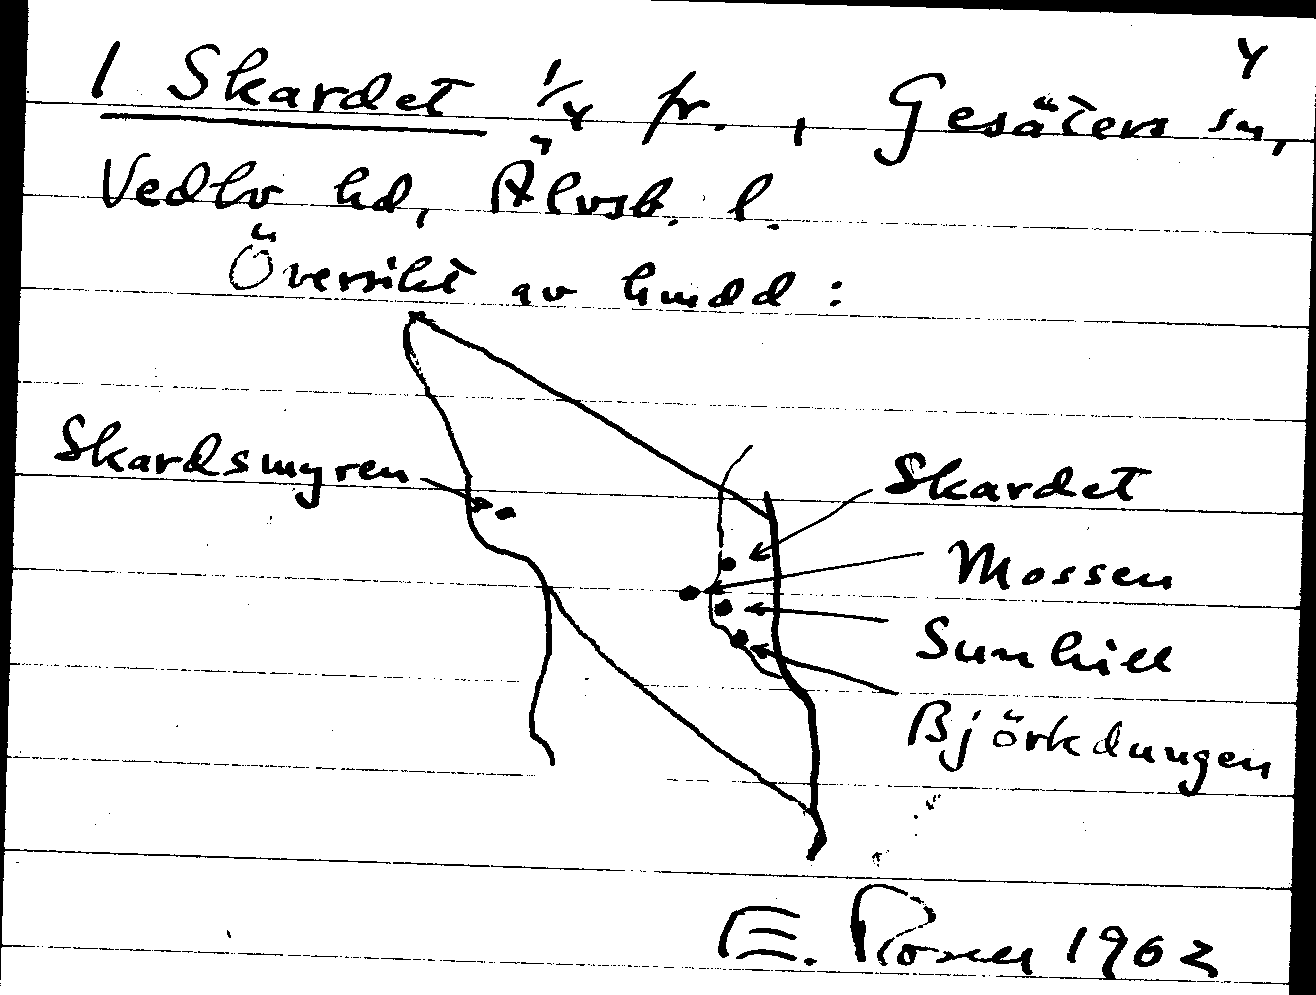 4
1 Skardet 1/4 fr., Gesäters sn,
Vedbo hd, Älvsb. l.
Översikt av hmdd :
Skardsmyren
Skardet
Mossen
Sunhill
Björkdungen
E. Rosell 1962